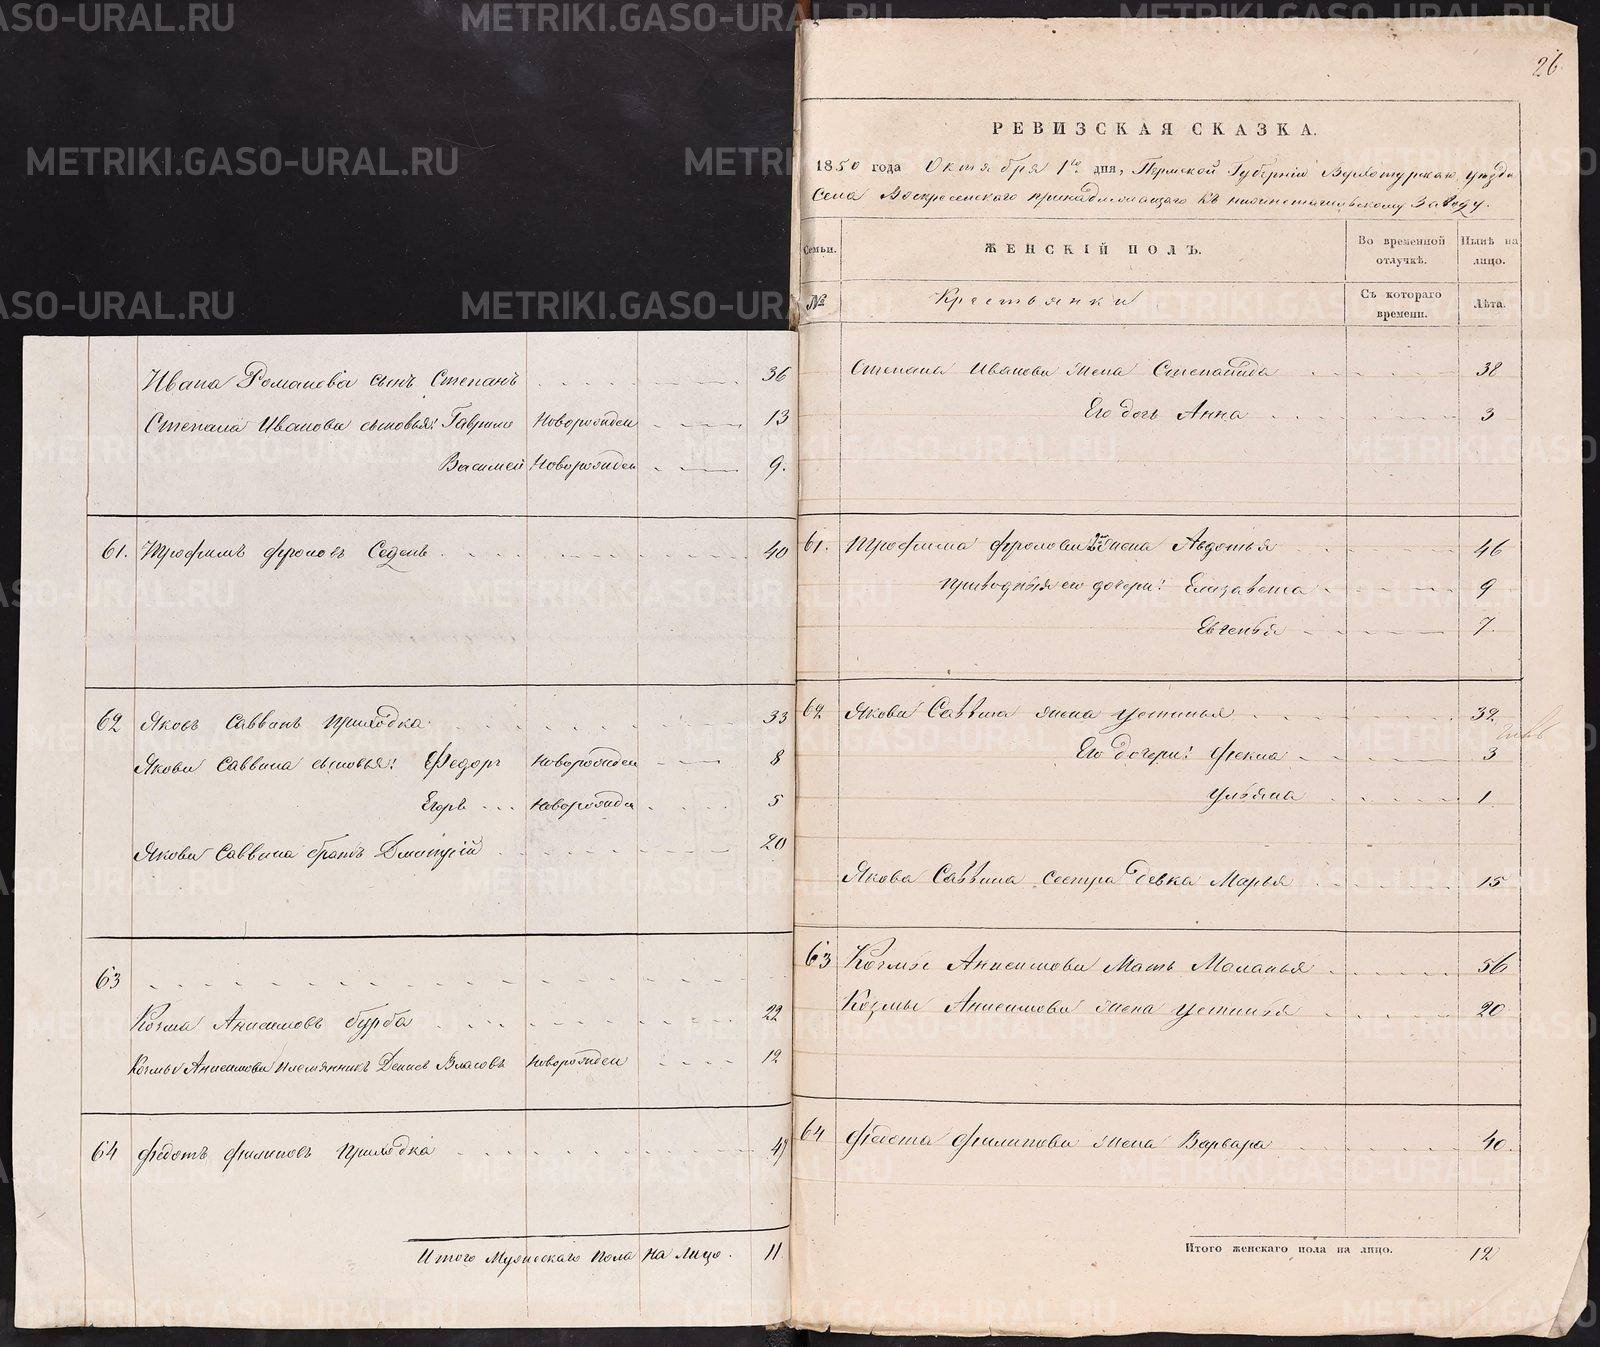 Ивана Романова сынъ Степанъ 36
Степана Иванова сыновья: Гаврило Новорожден 13
Василей Новорожден 9.
61. Трофимъ Фроловъ Седень 40
62 Яковъ Саввинъ Приходка 33
Якова Саввина сыновья: Федоръ Новорожден 8
Егоръ Новорожден 5
Якова Саввина братъ Дмитрій 20
63
Козма Анисимовъ Бурба 22
Козмы Анисимова племянникъ Денисъ Власовъ Новорожден 12
64 Федотъ Филиповъ Приходка 47
Итого Мужескаго пола на лицо. 11
26.
РЕВИЗСКАЯ СКАЗКА.
1850 года Октября 1го дня, Пермской Губерніи Верхотурскаго уѣзда
Села Воскресенского принадлежащаго къ нижнетагильскому заводу.
Семьи.
ЖЕНСКІЙ ПОЛЪ.
Во временной отлучкѣ.
Нынѣ на лицо.
№
Крестьянки
Съ котораго времени.
Лѣта.
Степана Иванова жена Степанида 38
Его дочь Анна 3
61. Трофима Фролова жена Авдотья 46
Приводныя его дочери: Елизавета 9
Евгенья 7.
62 Якова Саввина жена Устинья 32
Его дочери: Фекла 3
Ульяна 1
Якова Саввина сестра девка Марья 15
63 Козмы Анисимова Мать Маланья 56
Козмы Анисимова жена Устинья 20
64 Федота Филипова жена Варвара 40.
Итого женскаго пола на лицо. 12
METRIKI.GASO-URAL.RU